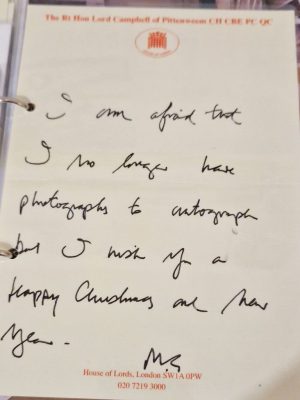 The Rt Hon Lord Campbell of Pittenweem CH CBE PC QC
I am afraid that
I no longer have
photographs to autograph
but I wish you a
Happy Christmas and New
Year.
M.C
House of Lords, London SW1A 0PW
020 7219 3000